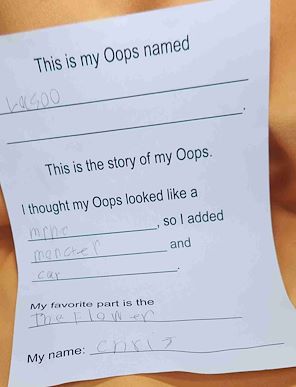 This is my Oops named
This is the story of my Oops.
I thought my Oops looked like a
, so I added
moncter and
car.
My favorite part is the
The Flower
My name: chris